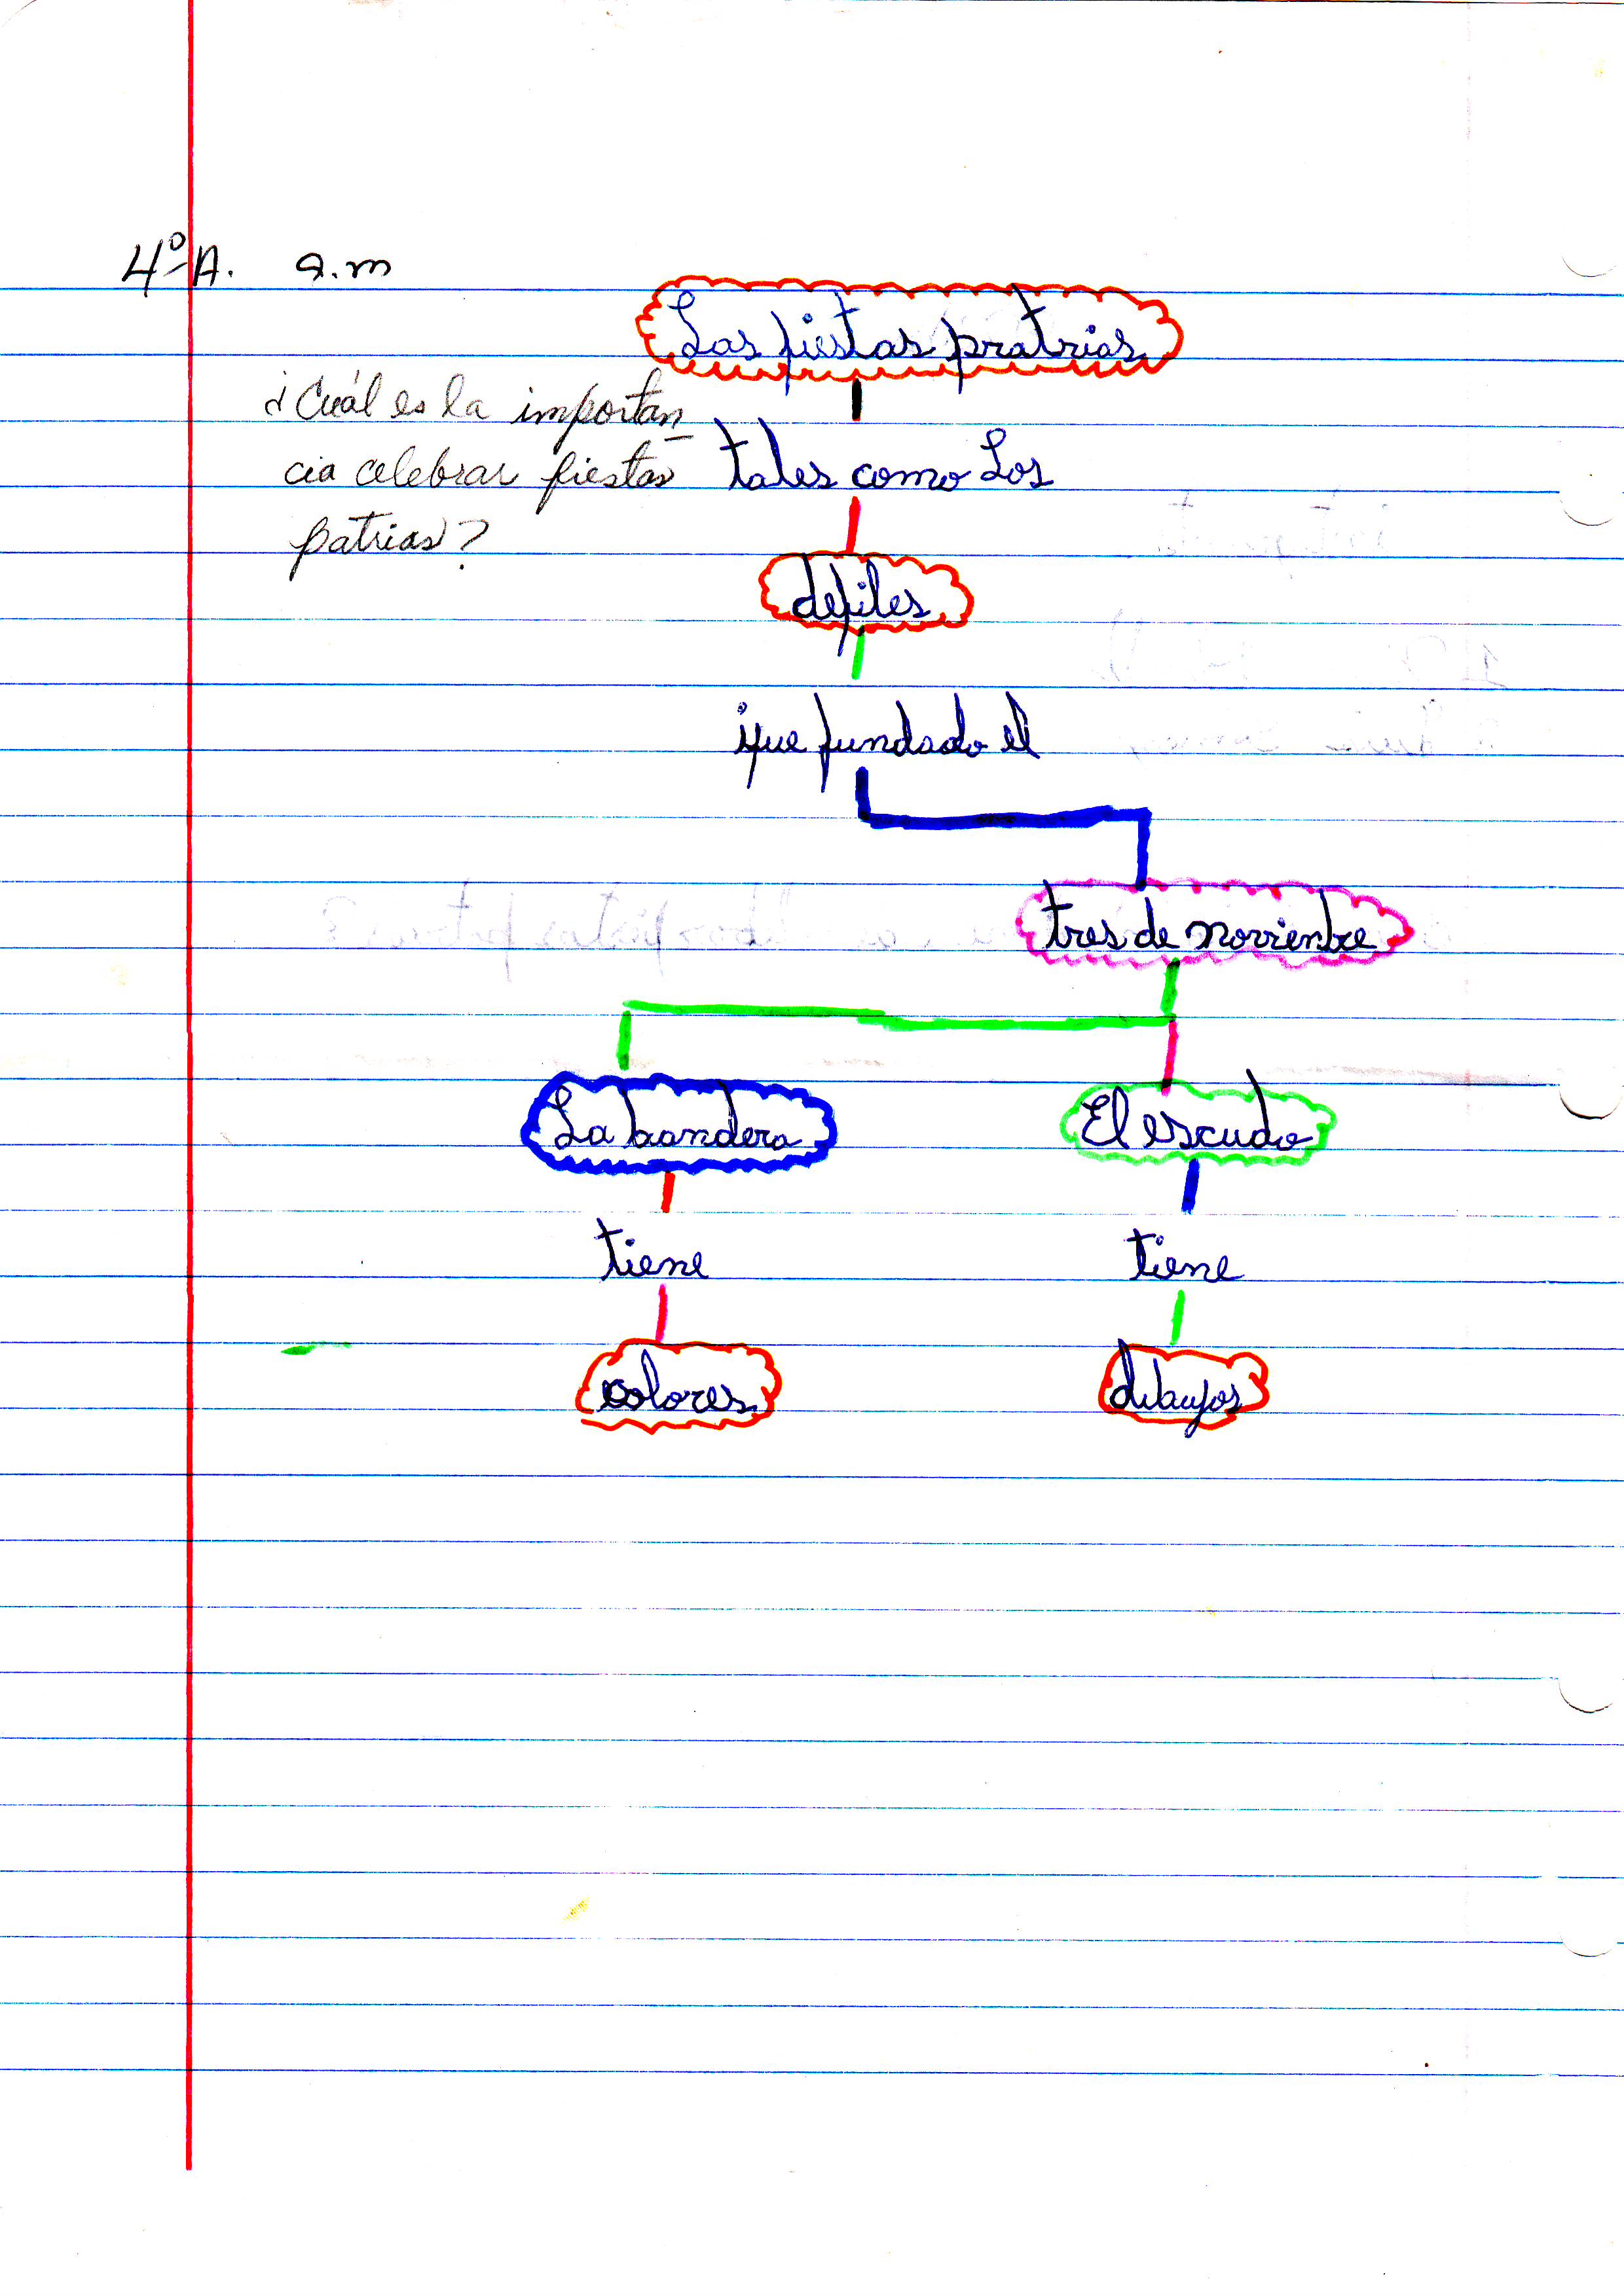 4º A. a.m
Las fiestas pratrias
¿Cuál es la importan
cia celebrar fiestas
patrias?
tales como Los
defiles
que fundado el
tres de novienbre
La bandera
El escudo
tiene
tiene
colores
dibujos